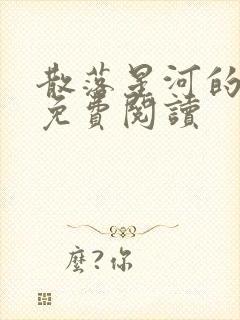 散落星河的
免費閱讀
麼?你